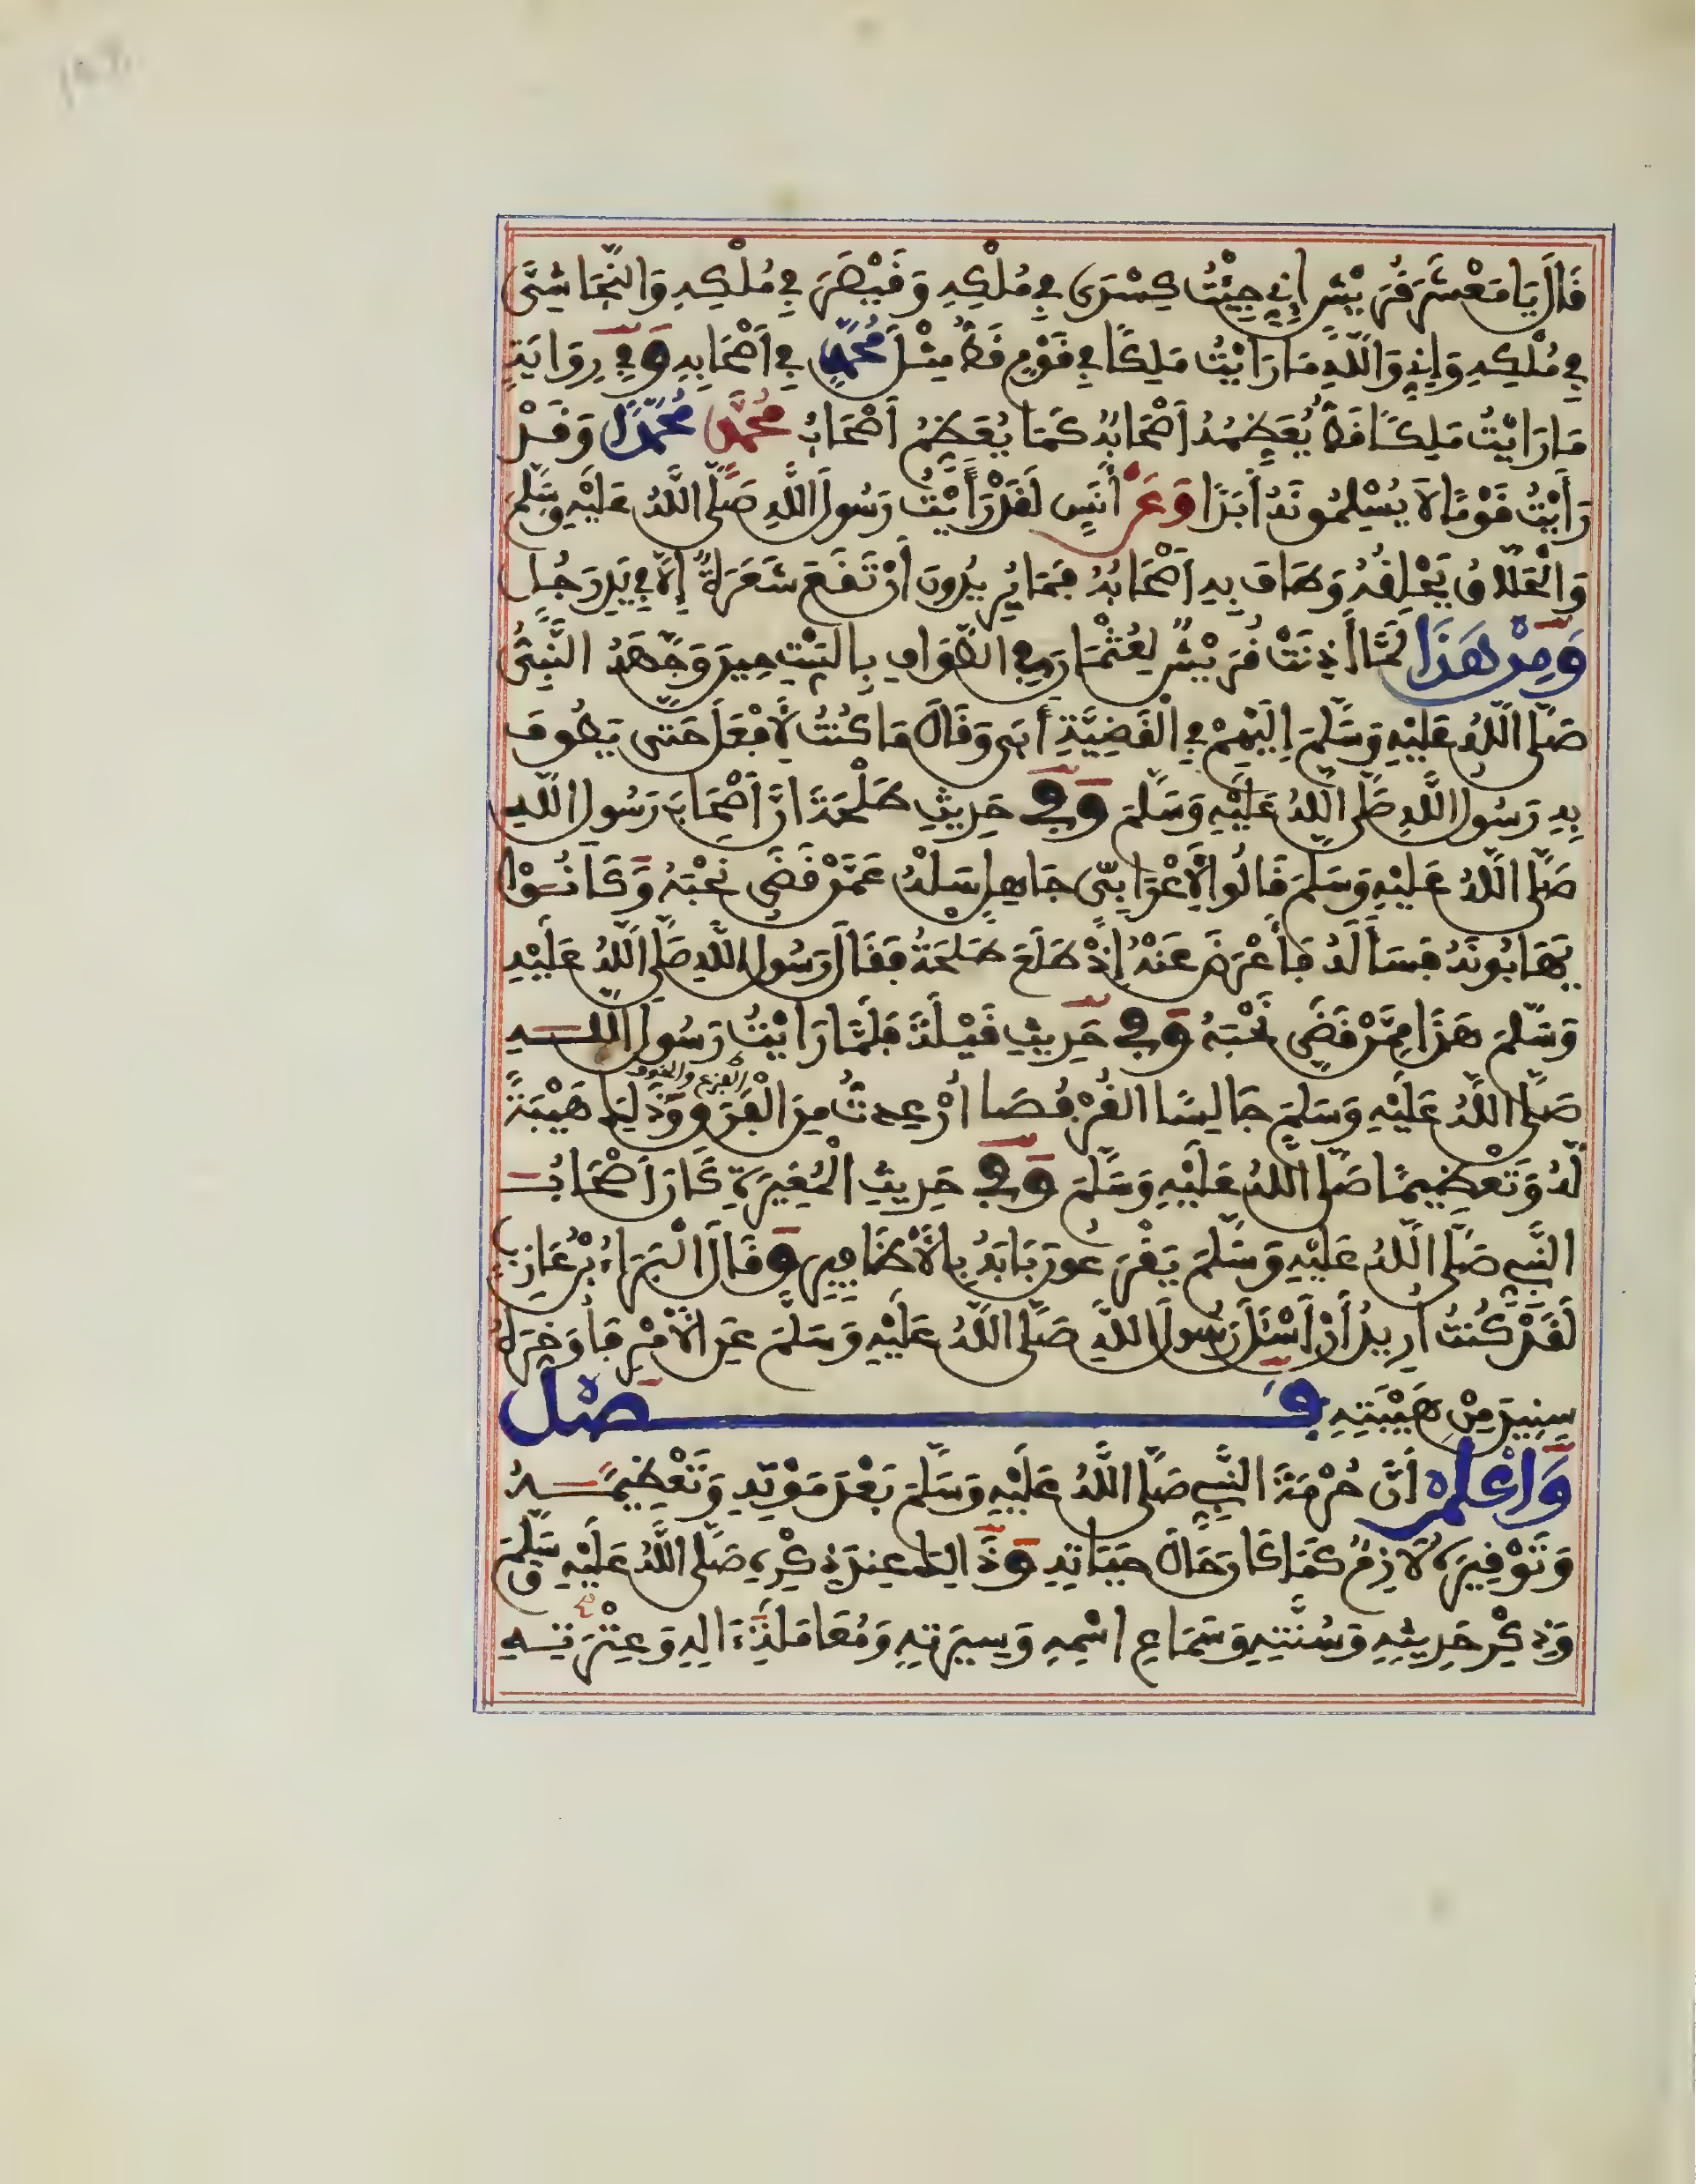 قَالَ يَا مَعْشَرَ قُرَيْشٍ إِنِّي جِئْتُ كِسْرَى فِي مُلْكِهِ وَقَيْصَرَ فِي مُلْكِهِ وَالنَّجَاشِيَّ
فِي مُلْكِهِ وَإِنِّي وَاللَّهِ مَا رَأَيْتُ مَلِكًا فِي قَوْمٍ قَطُّ مِثْلَ مُحَمَّدٍ فِي أَصْحَابِهِ وَفِي رِوَايَةٍ
مَا رَأَيْتُ مَلِكًا قَطُّ يُعَظِّمُهُ أَصْحَابُهُ كَمَا يُعَظِّمُ أَصْحَابُ مُحَمَّدٍ مُحَمَّدًا وَقَدْ
رَأَيْتُ قَوْمًا لَا يُسْلِمُونَهُ أَبَدًا وَعَنْ أَنَسٍ لَقَدْ رَأَيْتُ رَسُولَ اللَّهِ صَلَّى اللَّهُ عَلَيْهِ وَسَلَّمَ
وَالْحَلَّاقُ يَحْلِقُهُ وَطَافَ بِهِ أَصْحَابُهُ فَمَا يُرِيدُونَ أَنْ تَقَعَ شَعَرَةٌ إِلَّا فِي يَدِ رَجُلٍ
وَمِنْ هَذَا لَمَّا أَذِنَتْ قُرَيْشٌ لِعُثْمَانَ فِي الطَّوَافِ بِالْبَيْتِ حِينَ وَجَّهَهُ النَّبِيُّ
صَلَّى اللَّهُ عَلَيْهِ وَسَلَّمَ إِلَيْهِمْ فِي الْقَضِيَّةِ أَبَى وَقَالَ مَا كُنْتُ لِأَفْعَلَ حَتَّى يَطُوفَ
بِهِ رَسُولُ اللَّهِ صَلَّى اللَّهُ عَلَيْهِ وَسَلَّمَ وَفِي حَدِيثِ طَلْحَةَ أَنَّ أَصْحَابَ رَسُولِ اللَّهِ
صَلَّى اللَّهُ عَلَيْهِ وَسَلَّمَ قَالُوا لِأَعْرَابِيٍّ جَاهِلٍ سَلْهُ عَمَّنْ قَضَى نَحْبَهُ وَكَانُوا
يَهَابُونَهُ فَسَأَلَهُ فَأَعْرَضَ عَنْهُ إِذْ طَلَعَ طَلْحَةُ فَقَالَ رَسُولُ اللَّهِ صَلَّى اللَّهُ عَلَيْهِ
وَسَلَّمَ هَذَا مِمَّنْ قَضَى نَحْبَهُ وَفِي حَدِيثِ قَيْلَةَ فَلَمَّا رَأَيْتُ رَسُولَ اللَّهِ
الفزع والخوف
صَلَّى اللَّهُ عَلَيْهِ وَسَلَّمَ جَالِسًا الْقُرْفُصَا أُرْعِدتُّ مِنَ الْفَرَقِ وَذَلِكَ هَيْبَةً
لَهُ وَتَعْظِيمًا صَلَّى اللَّهُ عَلَيْهِ وَسَلَّمَ وَفِي حَدِيثِ الْمُغِيرَةِ كَانَ أَصْحَابُ
النَّبِيِّ صَلَّى اللَّهُ عَلَيْهِ وَسَلَّمَ يَقْرَعُونَ بَابَهُ بِالْأَظَافِيرِ وَقَالَ الْبَرَاءُ بْنُ عَازِبٍ
لَقَدْ كُنْتُ أُرِيدُ أَنْ أَسْئَلَ رَسُولَ اللَّهِ صَلَّى اللَّهُ عَلَيْهِ وَسَلَّمَ عَنِ الْأَمْرِ فَأُوَخِّرُهُ
سِنِينَ مِنْ هَيْبَتِهِ فَصْل
وَاعْلَمْ أَنَّ حُرْمَةَ النَّبِيِّ صَلَّى اللَّهُ عَلَيْهِ وَسَلَّمَ بَعْدَ مَوْتِهِ وَتَعْظِيمَهُ
وَتَوْقِيرَهُ لَازِمٌ كَمَا كَانَ حَالَ حَيَاتِهِ وَذَالِكَ عِنْدَ ذِكْرِهِ صَلَّى اللَّهُ عَلَيْهِ وَسَلَّمَ
وَذِكْرِ حَدِيثِهِ وَسُنَّتِهِ وَسَمَاعِ اسْمِهِ وَسِيرَتِهِ وَمُعَامَلَةِ ءَالِهِ وَعِتْرَتِهِ